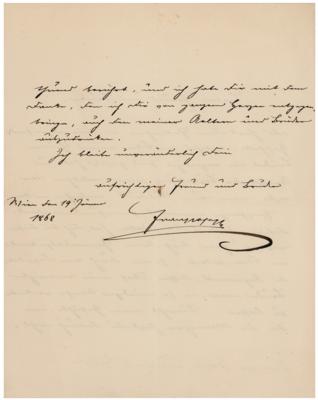 Freund berührt, und ich habe Dir mit dem
Danke, den ich Dir von ganzem Herzen entgegen
bringe, auch den meiner Aeltern und Brüder
auszudrücken.
Ich bleibe unveränderlich Dein
aufrichtiger Freund und Bruder
Wien den 19 Jänner
1868
Franz Joseph